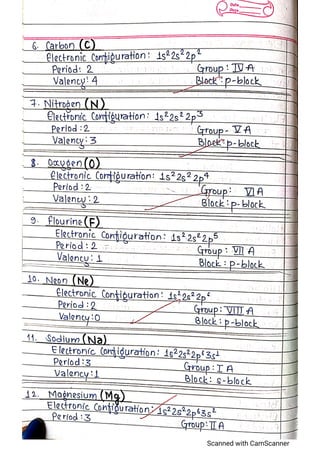 Date
Page
6. Carbon (C)
Electronic Configuration: 1s²2s²2p²
Period: 2 Group: IV A
Valency: 4 Block: p-block
7. Nitrogen (N)
Electronic Configuration: 1s²2s²2p³
Period: 2 Group- V A
Valency: 3 Block: p-block
8. Oxygen (O)
Electronic Configuration: 1s²2s²2p⁴
Period: 2 Group: VI A
Valency: 2 Block: p-block
9. Flourine (F)
Electronic Configuration: 1s²2s²2p⁵
Period: 2 Group: VII A
Valency: 1 Block: p-block
10. Neon (Ne)
Electronic Configuration: 1s²2s²2p⁶
Period: 2 Group: VIII A
Valency: 0 Block: p-block
11. Sodium (Na)
Electronic Configuration: 1s²2s²2p⁶3s¹
Period: 3 Group: I A
Valency: 1 Block: s-block
12. Magnesium (Mg)
Electronic Configuration: 1s²2s²2p⁶3s²
Period: 3 Group: II A
Scanned with CamScanner